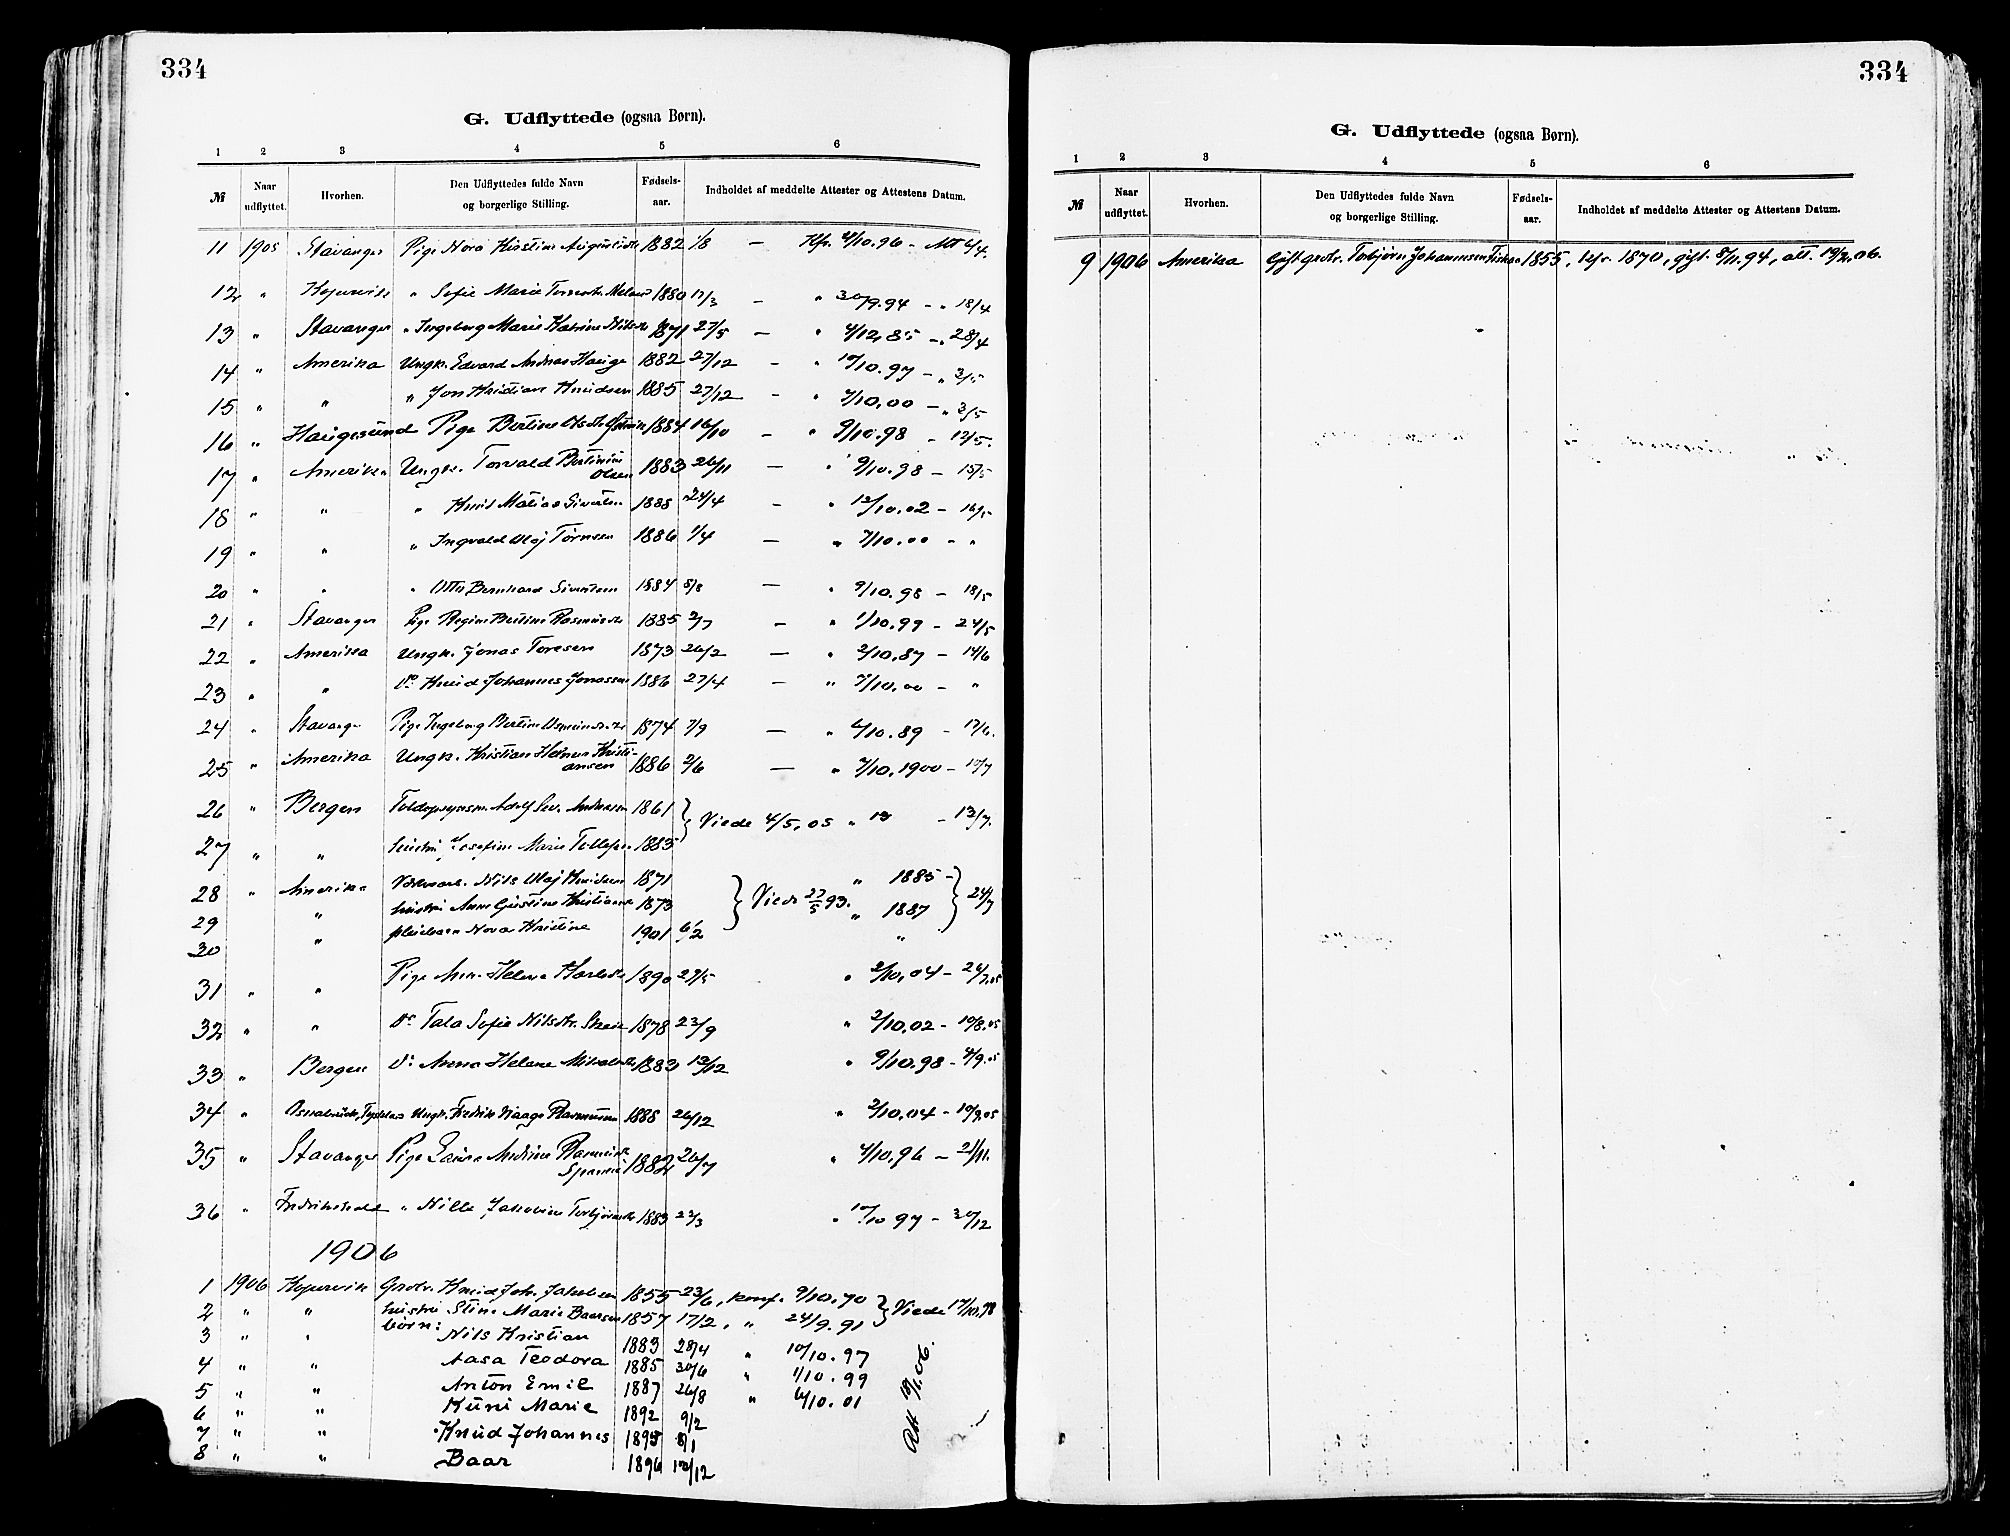 334
G. Udflyttede (ogsaa Børn).
1 2 3 4 5 6
№ Naar udflyttet. Hvorhen. Den Udflyttedes fulde Navn og borgerlige Stilling. Fødsels-aar. Indholdet af meddelte Attester og Attestens Datum.
11 1905 Stavanger Pige Nora Kirstine 1882 1/8 – Kfr. 4/10.96 –
12 " Kopervik " Sofie Marie 1880 – " 30/9.94 – " 18/4
13 " Stavanger " Ingeborg Marie Katrine 1871 27/5 – " 4/12.85 – " 28/4
14 " Amerika Ungk. Edvard Andreas Hauge 1882 27/12 – " 10/10.97 – " 3/5
15 " " " Jon Kristian Knudsen 1885 27/12 – " 7/10.00 – " 3/5
16 " Haugesund Pige Bertine 1884 16/10 – " 9/10.98 – 12/5.
17 " Amerika Ungk. Torvald Bertinius
Olsen 1883 26/11 – " 9/10.98 – 15/5
18 " " " Knut Matias Sivertsen 1888 24/4 – " 12/10.02 – 16/5
19 " " " Ingvald Olaj Tørresen 1886 1/4 – " 7/10.00 – "
20 " " " Otto Bernhard Sivertsen 1884 8/8 – " 9/10.98 – 18/5
21 " Stavanger Pige Regine Bertine Rasmusdtr 1885 2/7 – " 1/10.99 – 24/5
22 " Amerika Ungk. Jonas Toresen 1873 26/2 – " 2/10.87 – 14/6
23 " " Do Knud Johannes Jonassen 1886 27/4 – " 7/10.00 – "
24 " Stavanger Pige Ingeborg Bertine 1874 7/9 – " 6/10.89 – 17/6.
25 " Amerika Ungk. Kristian Helmer Kristi-
ansen 1886 2/6 – " 7/10.1900 – 10/7
26 " Bergen Adolf Sev. Andreasen 1861 } Viede 4/5.05 " – 13/7.
27 " " hustru Josefine Marie 1885
28 " Amerika Nils Olaj Knudsen 1871 " 1885 –
29 " hustru Anne Gustine 1873 } Viede 27/5 93. " 1887 } 24/7
30 " pleiebarn Nora Kristine 1901 6/2 "
31 " " Pige Helene 1890 27/5 " 2/10.04 – 26/7.05
32 " " Do Tala Sofie Nilsdtr. 1878 23/9 " 2/10.02 – 10/8.05
33 " Bergen Do Anna Helene 1883 13/12 " 9/10.98 – 4/9.05
34 " Ungk. Fredrik Rasmussen 1888 26/12 " 2/10.04 – 10/9.05
35 " Stavanger Pige Laura Andrine
1882 26/7 " 4/10.96 – 21/11.
36 " " Nille Jakobine 1883 23/3 " 10/10 97 – 30/12
1906
1 1906 Kopervik Grdbr. Knud Joh. Jakobsen 1855 23/6, konf. 9/10.70 } Viede 17/10.78
2 " " hustru Stine Marie Baarsen 1857 17/2, " 24/9.91
3 " " børn: Nils Kristian 1883 28/4 " 10/10.97
4 " " Aasa Teodora 1885 30/6 " 1/10.99
5 " " Anton Emil 1887 26/8 " 6/10.01
6 " " Kuni Marie 1892 9/2
7 " " Knud Johannes 1895 8/1
8 " " Baar 1896 10/12
334
G. Udflyttede (ogsaa Børn).
1 2 3 4 5 6
№ Naar udflyttet. Hvorhen. Den Udflyttedes fulde Navn og borgerlige Stilling. Fødsels-aar. Indholdet af meddelte Attester og Attestens Datum.
9 1906 Amerika Gift grdbr. Torbjørn Johannesen 1855, kfr. 1870, gift 8/11.94, att. 19/2.06.